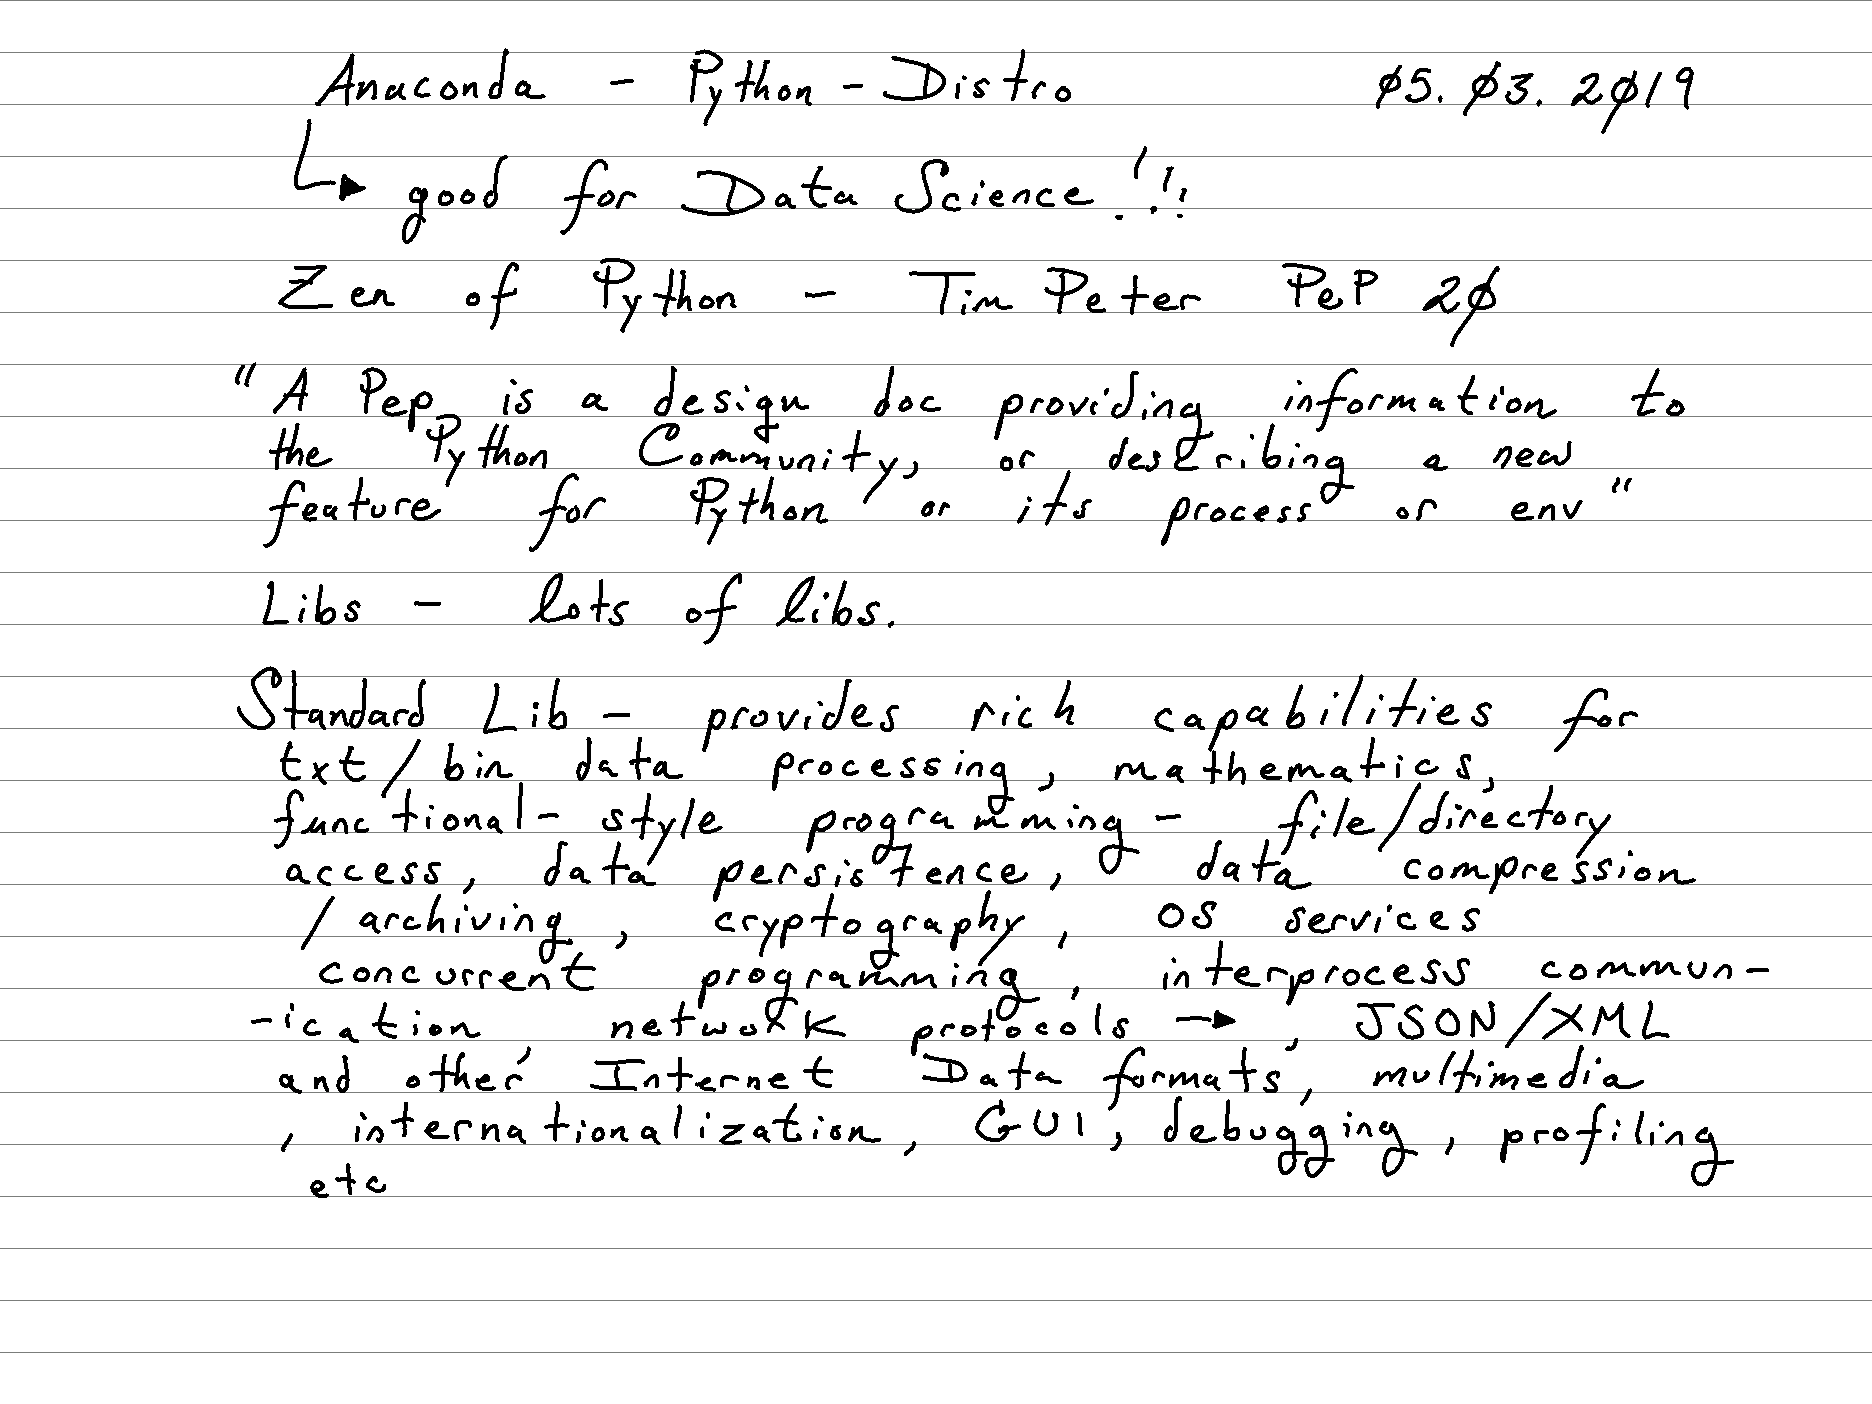 Anaconda - Python - Distro 05.03.2019
good for Data Science!!!
Zen of Python - Tim Peter PeP 20
"A Pep is a design doc providing information to
the Python Community, or describing a new
feature for Python or its process or env"
Libs - lots of libs.
Standard Lib - provides rich capabilities for
txt/bin data processing, mathematics,
functional-style programming - file/directory
access, data persistence, data compression
/archiving, cryptography, OS services
concurrent programming, interprocess commun-
-ication, network protocols → , JSON/XML
and other Internet Data formats, multimedia
, internationalization, GUI, debugging, profiling
etc